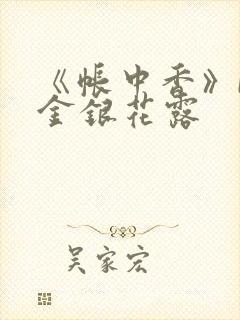 《帐中香》
金银花露
吴家宏